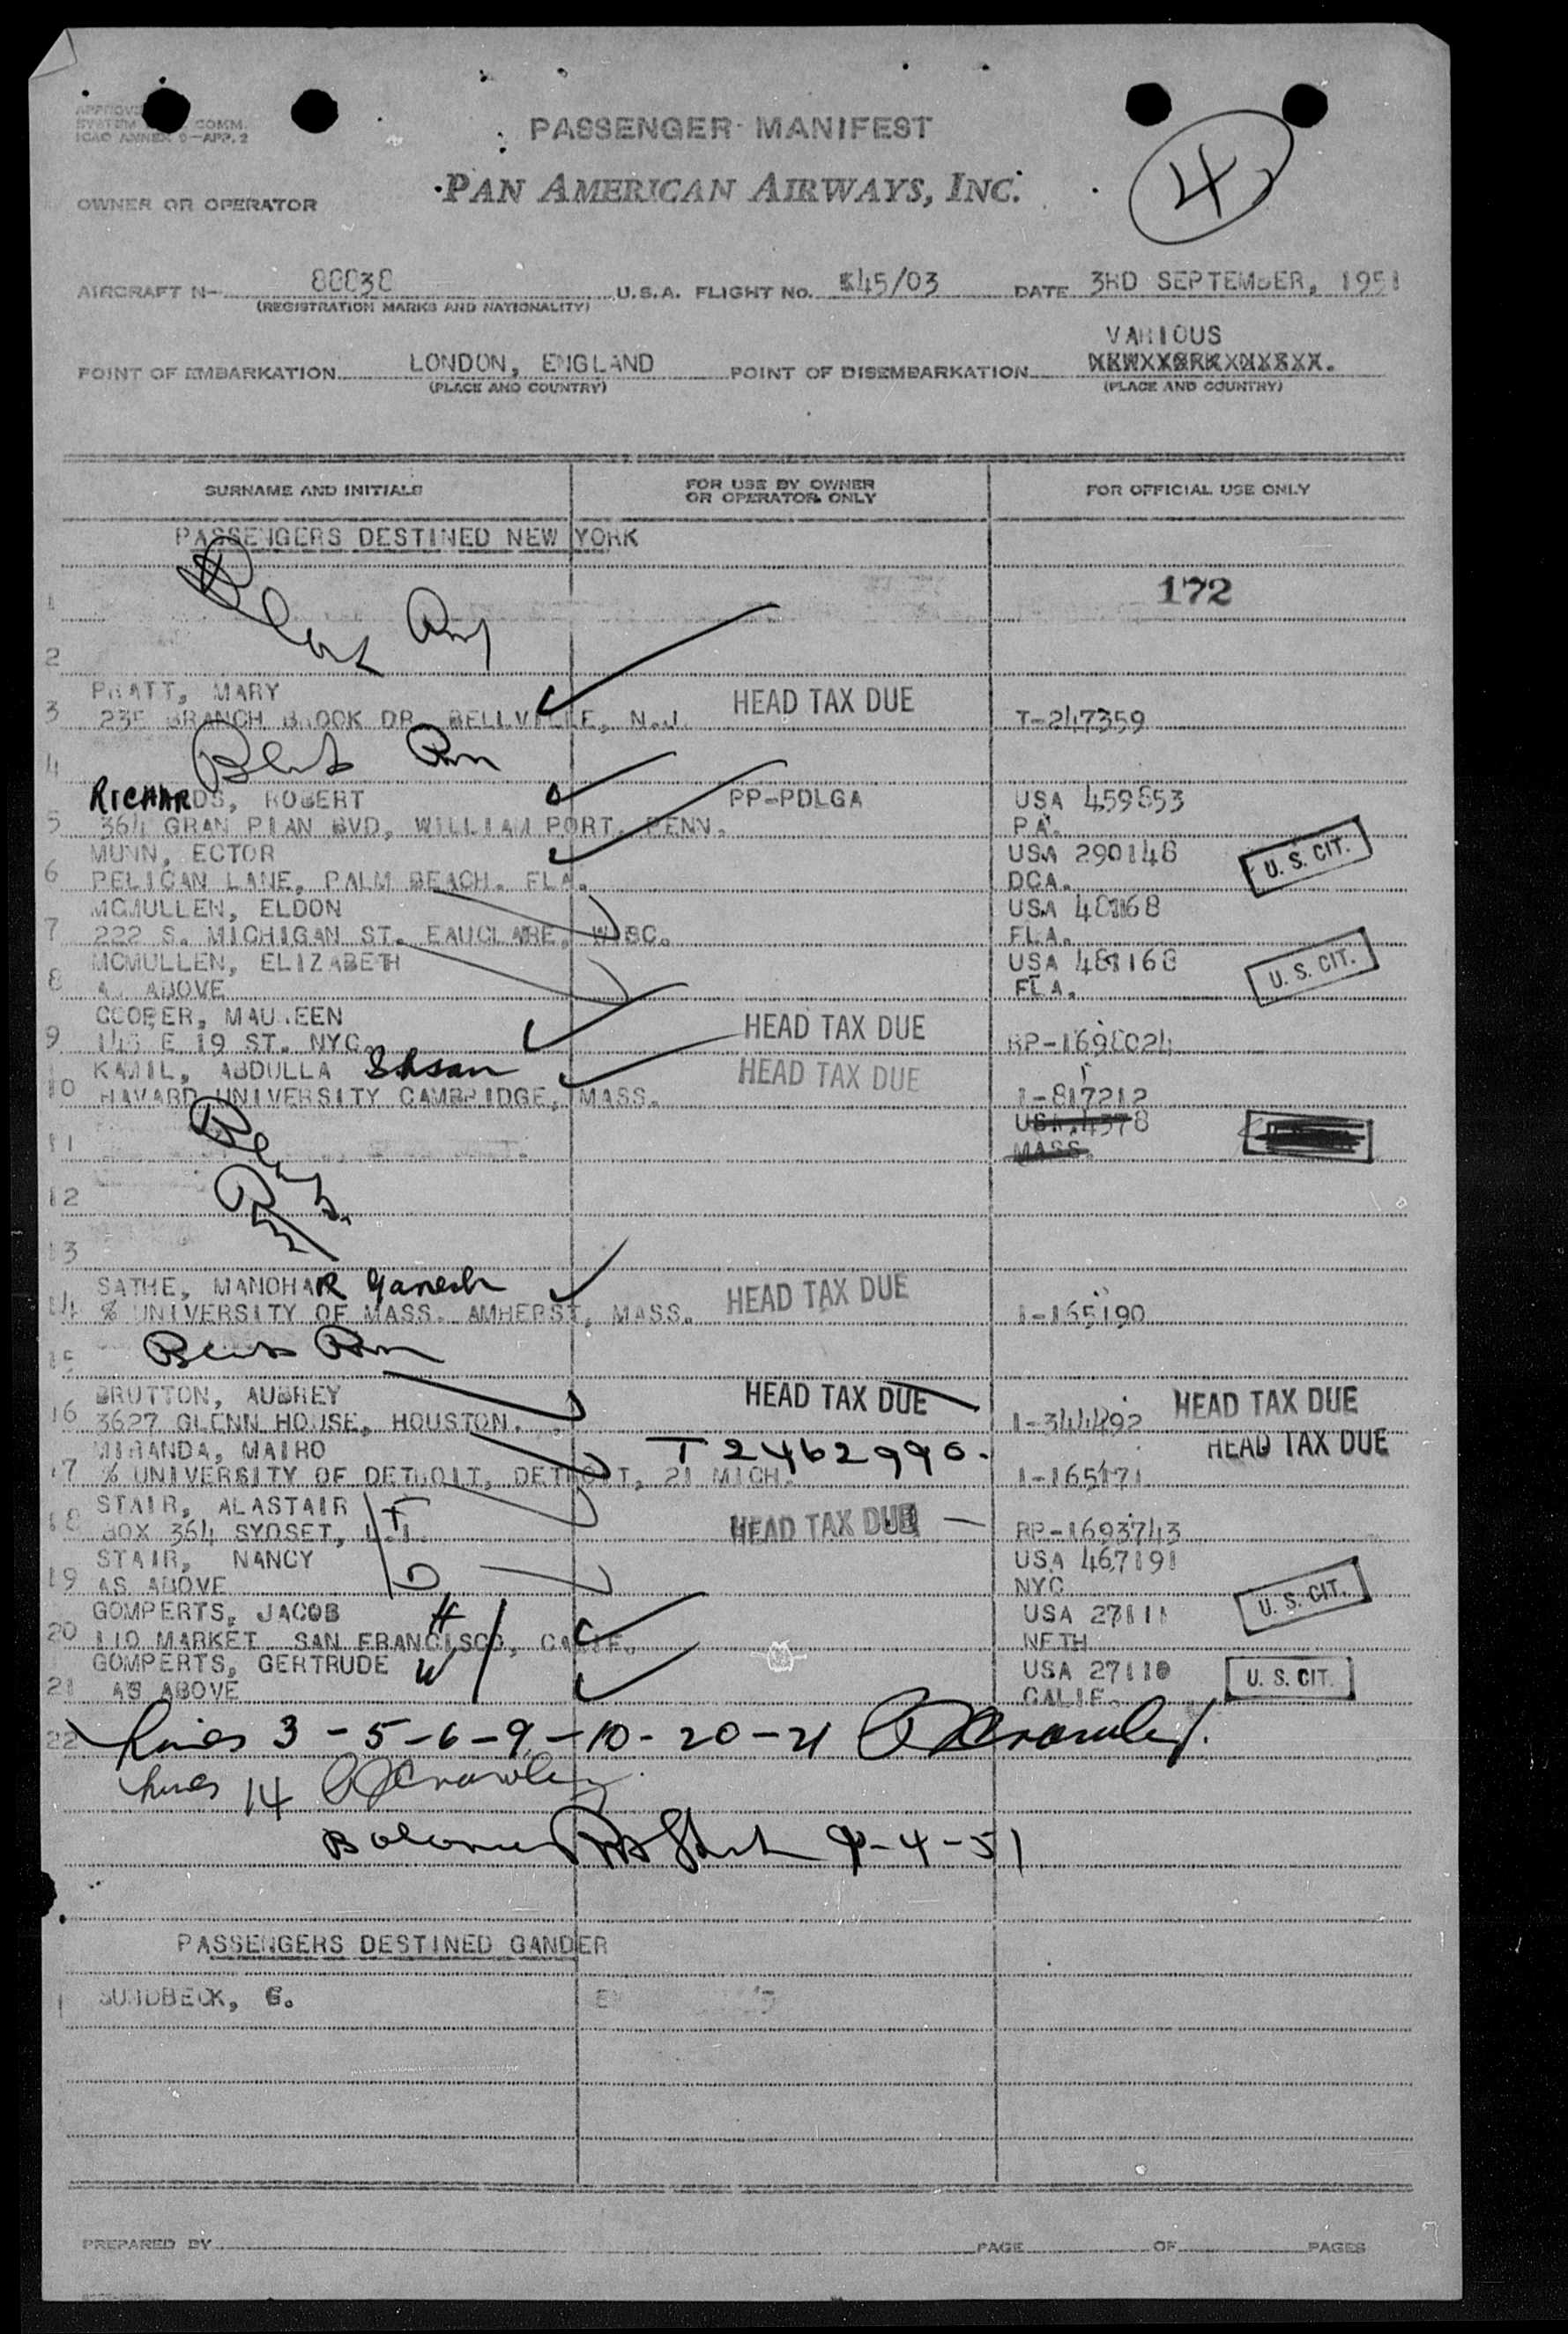 PASSENGER MANIFEST
PAN AMERICAN AIRWAYS, INC.
4
ICAO ANNEX 9-APP. 2
OWNER OR OPERATOR
AIRCRAFT N- U.S.A. FLIGHT No. 145/03 DATE 3RD SEPTEMBER, 1951
(REGISTRATION MARKS AND NATIONALITY)
VARIOUS
POINT OF EMBARKATION LONDON, ENGLAND POINT OF DISEMBARKATION
(PLACE AND COUNTRY) (PLACE AND COUNTRY)
SURNAME AND INITIALS FOR USE BY OWNER OR OPERATOR ONLY FOR OFFICIAL USE ONLY
PASSENGERS DESTINED NEW YORK
1 172
2
PRATT, MARY HEAD TAX DUE
3 BRANCH BROOK DR. BELLVILLE, N.J. T-247359
4
RICHARDS, ROBERT PP-PDLGA USA 459853
5 364 GRAN PIAN BVD, WILLIAM PORT, PENN. PA.
MUNN, ECTOR USA 290148 U. S. CIT.
6 PELICAN LANE, PALM BEACH. FLA. DCA.
MCMULLEN, ELDON USA
7 222 S. MICHIGAN ST. EAUCLARE, WISC. FLA.
MCMULLEN, ELIZABETH USA 481168 U. S. CIT.
8 AS ABOVE FLA.
COOPER, MAUREEN HEAD TAX DUE
9 145 E 19 ST. NYC. RP-1698024
KAMIL, ABDULLA Ehsan HEAD TAX DUE
10 HAVARD UNIVERSITY CAMBRIDGE, MASS. I-817212
11 MASS.
12
13
SATHE, MANOHAR Ganesh HEAD TAX DUE
14 % UNIVERSITY OF MASS. AMHERST, MASS. I-165190
15
BRUTTON, AUBREY HEAD TAX DUE HEAD TAX DUE
16 3627 GLENN HOUSE, HOUSTON. I-344492
MIRANDA, MAIRO T 2462990. HEAD TAX DUE
17 % UNIVERSITY OF DETROIT, DETROIT, 21 MICH. I-165171
STAIR, ALASTAIR F HEAD TAX DUE
18 BOX 364 SYOSET, L.I. RP-1693743
STAIR, NANCY D USA 467191 U. S. CIT.
19 AS ABOVE NYC
GOMPERTS, JACOB H USA 27111
20 110 MARKET SAN FRANCISCO, CALIF. NETH
GOMPERTS, GERTRUDE W USA 27110 U. S. CIT.
21 AS ABOVE CALIF.
22 Lines 3-5-6-9-10-20-21
Lines 14
Balance 9-4-51
PASSENGERS DESTINED GANDER
1 SUNDBECK, G.
PREPARED BY PAGE OF PAGES